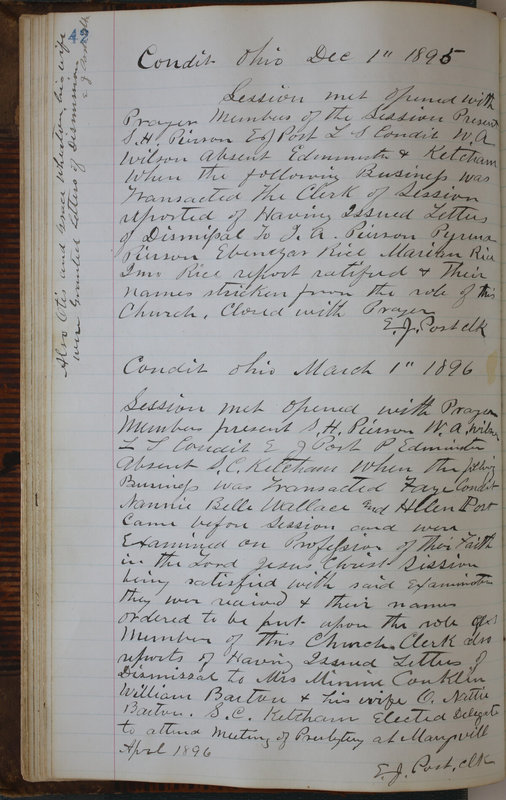 42
Condit Ohio Dec 1" 1895
Session met opened with
Prayer Members of the Session Present
S. H. Pierson E J Post L S Condit W. A
Wilson absent Edminster & Ketcham
When the following Business was
Transacted The Clerk of Session
reported of Having Issued Letters
of Dismissal To J. A. Pierson Pyrena
Pierson Ebenezar Rice Marian Rice
Rice report ratified & their
names stricken from the role of this
Church. Closed with Prayer
E. J. Post clk
Condit Ohio March 1" 1896
Session met opened with Prayer
Members present S. H. Pierson W. A. Wilson
L S Condit E J Post P Edminster
absent S. C. Ketcham When the folowing
Business was Transacted Faye Condit
Nannie Belle Wallace and Hellen Post
Came before Session and were
Examined on Profession of their Faith
in the Lord Jesus Christ Session
being satisfied with said Examination
they wer & their names
ordered to be put upon the role of
Member of this Church. Clerk also
reports of Having Issued Letters of
Dismissal to Mrs Minnie Conklin
William Barton & his wife O. Nattie
Barton. S. C. Ketcham Elected Delegate
to attend Meeting of Presbytery at Marysvill
April 1896
E. J. Post, clk
Also Otis and Wheaton, his wife
were Granted Letters of Dismission
E J Post clk